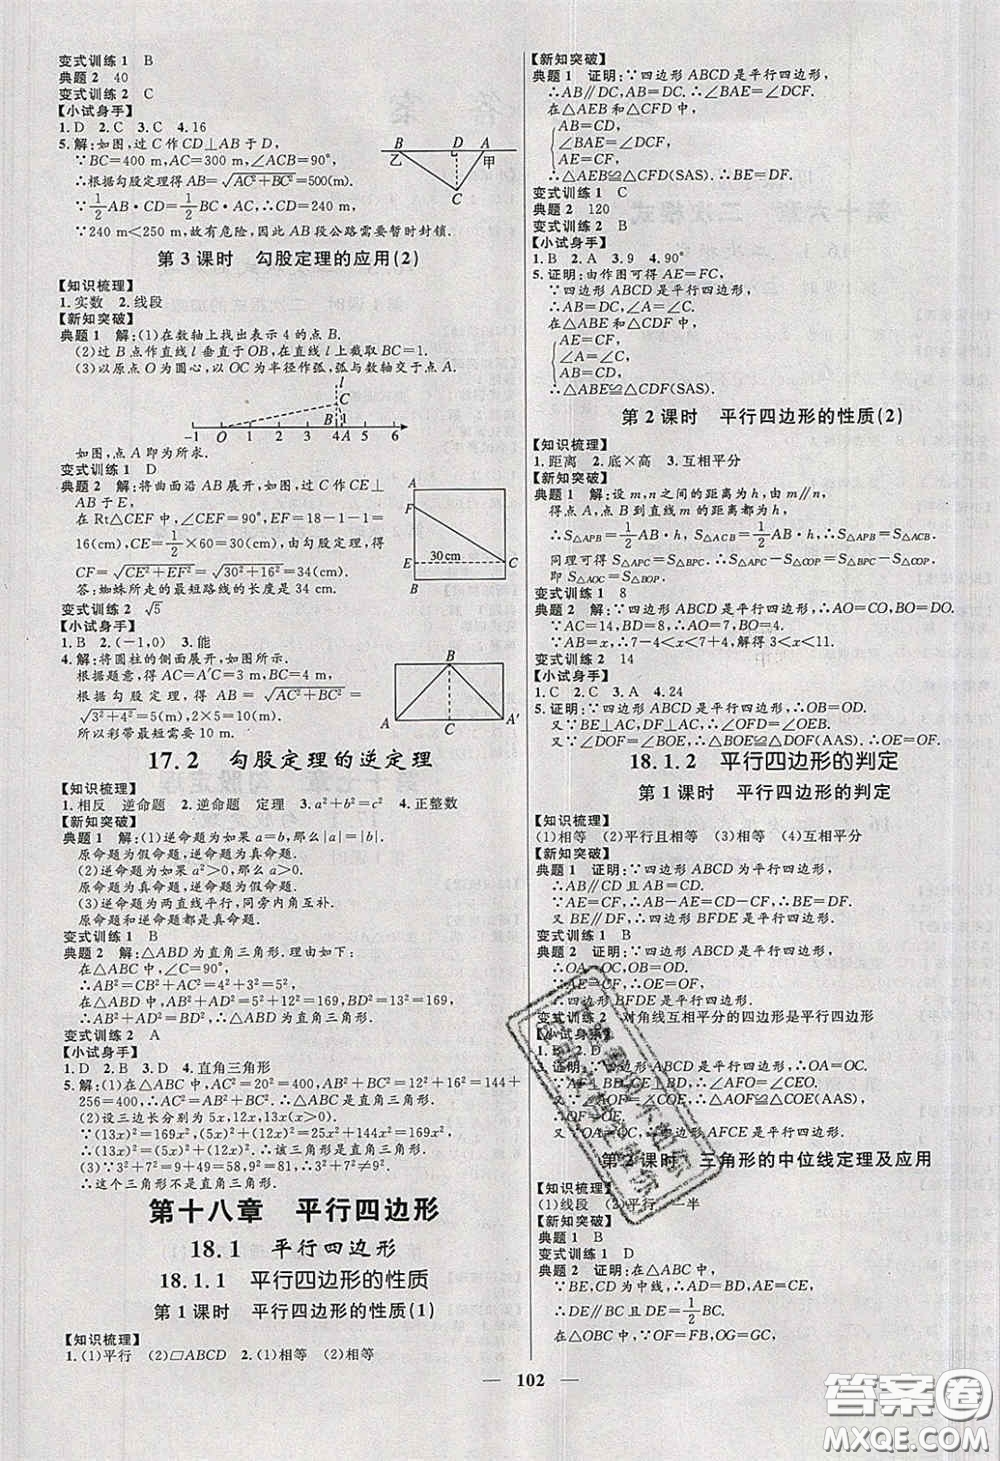 变式训练 1　B
典题 2　40
变式训练 2　C
【小试身手】
1. D　2. C　3. C　4. 16
5. 解:如图,过 C 作 CD⊥AB 于 D,
∵BC=400 m,AC=300 m,∠ACB=90°,
∴根据勾股定理得 AB=√(AC²+BC²)=500(m).
∵1/2 AB·CD=1/2 BC·AC,∴CD=240 m,
∵240 m<250 m,故有危险,因此 AB 段公路需要暂时封锁.
B D A
乙 甲
C
第 3 课时　勾股定理的应用(2)
【知识梳理】
1. 实数　2. 线段
【新知突破】
典题 1　解:(1)在数轴上找出表示 4 的点 B.
(2)过 B 点作直线 l 垂直于 OB,在直线 l 上截取 BC=1.
(3)以原点 O 为圆心,以 OC 为半径作弧,弧与数轴交于点 A.
l
C
B
-1 0 1 2 3 4 A 5 6
如图,点 A 即为所求.
变式训练 1　D
典题 2　解:将曲面沿 AB 展开,如图所示,过 C 作 CE⊥
AB 于 E.
在 Rt△CEF 中,∠CEF=90°,EF=18-1-1=
16(cm),CE=1/2×60=30(cm),由勾股定理,得
CF=√(CE²+EF²)=√(30²+16²)=34(cm).
答:蜘蛛所走的最短路线的长度是 34 cm.
A
F
30 cm
E C
B
变式训练 2　√5
【小试身手】
1. B　2. (-1,0)　3. 能
4. 解:将圆柱的侧面展开,如图所示.
根据题意,得 AC=A′C=3 m,BC=4 m,
根据勾股定理,得 AB=√(AC²+BC²)=
√(3²+4²)=5(m),2×5=10(m).
所以彩带最短需要 10 m.
B
A C A′
17.2　勾股定理的逆定理
【知识梳理】
1. 相反　逆命题　2. 逆命题　定理　3. a²+b²=c²　4. 正整数
【新知突破】
典题 1　解:(1)逆命题为如果 a=b,那么|a|=|b|.
原命题为假命题,逆命题为真命题.
(2)逆命题为如果 a²>0,那么 a>0.
原命题为真命题,逆命题为假命题.
(3)逆命题为两直线平行,同旁内角互补.
原命题和逆命题都是真命题.
变式训练 1　B
典题 2　解:△ABD 为直角三角形.理由如下:
在△ABC 中,∠C=90°,
∴AB²=CB²+AC²=4²+3²=5²,
在△ABD 中,AB²+AD²=5²+12²=13²=169,
∴AB²+AD²=BD²,∴△ABD 为直角三角形.
变式训练 2　A
【小试身手】
1. D　2. B　3. D　4. 直角三角形
5. 解:(1)在△ABC 中,AC²=20²=400,AB²+BC²=12²+16²=144+
256=400,∴AC²=AB²+BC²,∴△ABC 是直角三角形.
(2)设三边长分别为 5x,12x,13x(x>0).
∵(13x)²=169x²,(5x)²+(12x)²=169x²,
∴(13x)²=(5x)²+(12x)²,∴该三角形是直角三角形.
(3)∵3²+7²=9+49=58,9²=81,∴3²+7²≠9².
∴这个三角形不是直角三角形.
第十八章　平行四边形
18.1　平行四边形
18.1.1　平行四边形的性质
第 1 课时　平行四边形的性质(1)
【知识梳理】
1. (1)平行　(2)□ABCD　2. (1)相等　(2)相等
【新知突破】
典题 1　证明:∵四边形 ABCD 是平行四边形,
∴AB∥DC,AB=DC.∴∠BAE=∠DCF.
在△AEB 和△CFD 中,
AB=CD,
∠BAE=∠DCF,
AE=CF,
∴△AEB≌△CFD(SAS).∴BE=DF.
变式训练 1　C
典题 2　120
变式训练 2　B
【小试身手】
1. D　2. A　3. 9　4. 90°
5. 证明:由作图可得 AE=FC,
∵四边形 ABCD 是平行四边形,
∴AB=DC,∠A=∠C.
在△ABE 和△CDF 中,
AE=CF,
∠A=∠C,
AB=CD,
∴△ABE≌△CDF(SAS).
第 2 课时　平行四边形的性质(2)
【知识梳理】
1. 距离　2. 底×高　3. 互相平分
【新知突破】
典题 1　解:设 m,n 之间的距离为 h,由 m∥n,
得点 A,点 B 到直线 m 的距离都为 h,
∴S△APB=1/2 AB·h,S△ACB=1/2 AB·h,∴S△APB=S△ACB.
同理可得 S△APC=S△BPC,∴S△APC-S△COP=S△BPC-S△COP,
即 S△AOC=S△BOP.
变式训练 1　8
典题 2　解:∵四边形 ABCD 是平行四边形,∴AO=CO,BO=DO.
∵AC=14,BD=8,∴AO=7,BO=4.
∵AB=x,∴7-4<x<7+4,解得 3<x<11.
变式训练 2　14
【小试身手】
1. C　2. C　3. A　4. 24
5. 证明:∵四边形 ABCD 是平行四边形,∴OA=OC.
又∵BE∥AC,DF∥AC,∴∠OFD=∠OEB.
又∵∠BOE=∠DOF,∴△BOE≌△DOF(AAS).∴BE=DF.
18.1.2　平行四边形的判定
第 1 课时　平行四边形的判定
【知识梳理】
(1)相等　(2)平行且相等　(3)相等　(4)互相平分
【新知突破】
典题 1　证明:∵四边形 ABCD 为平行四边形,
∴AB∥CD 且 AB=CD.
∵AE=CF,∴AB-AE=CD-CF,∴BE=DF,
又∵BE∥DF,∴四边形 BFDE 是平行四边形.
变式训练 1　B
典题 2　证明:∵四边形 ABCD 为平行四边形,
∴OA=OC,OB=OD.
∵AE=CF,∴OE=OF.
∴四边形 BFDE 是平行四边形.
变式训练 2　对角线互相平分的四边形是平行四边形
【小试身手】
1. B　2. D
3. 证明:∵四边形 ABCD 是平行四边形,∴OA=OC.
∵AD∥BC,∴∠AFO=∠CEO.
又∵∠AOF=∠COE,∴△AOF≌△COE(AAS).
∴OF=OE.
又∵OA=OC,∴四边形 AFCE 是平行四边形.
第 2 课时　三角形的中位线定理及应用
【知识梳理】
(1)线段　(2)平行　一半
【新知突破】
典题 1　B
变式训练 1　D
典题 2　证明:在△ABC 中,∵BE、CD 为中线,∴AD=BD,AE=CE,
∴DE∥BC 且 DE=1/2 BC.
在△OBC 中,∵OF=FB,OG=GC,
102
答案圈
MXQE.COM